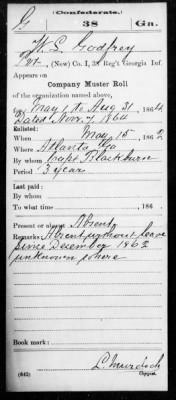 (Confederate.)
G 38 Ga.
W. S. Godfrey
Pvt., (New) Co. I, 38 Reg't Georgia Inf.
Appears on
Company Muster Roll
of the organization named above,
for May 1 to Aug 31, 1864
Dated Nov. 7, 1864
Enlisted:
When May 15, 1862
Where Atlanta Ga
By whom Capt. Blackburn
Period 3 years
Last paid:
By whom
To what time , 186 .
Present or absent Absent
Remarks: Absent without leave
since December 1862
unknown where
Book mark:
L. Murdoch
(642) Copyist.